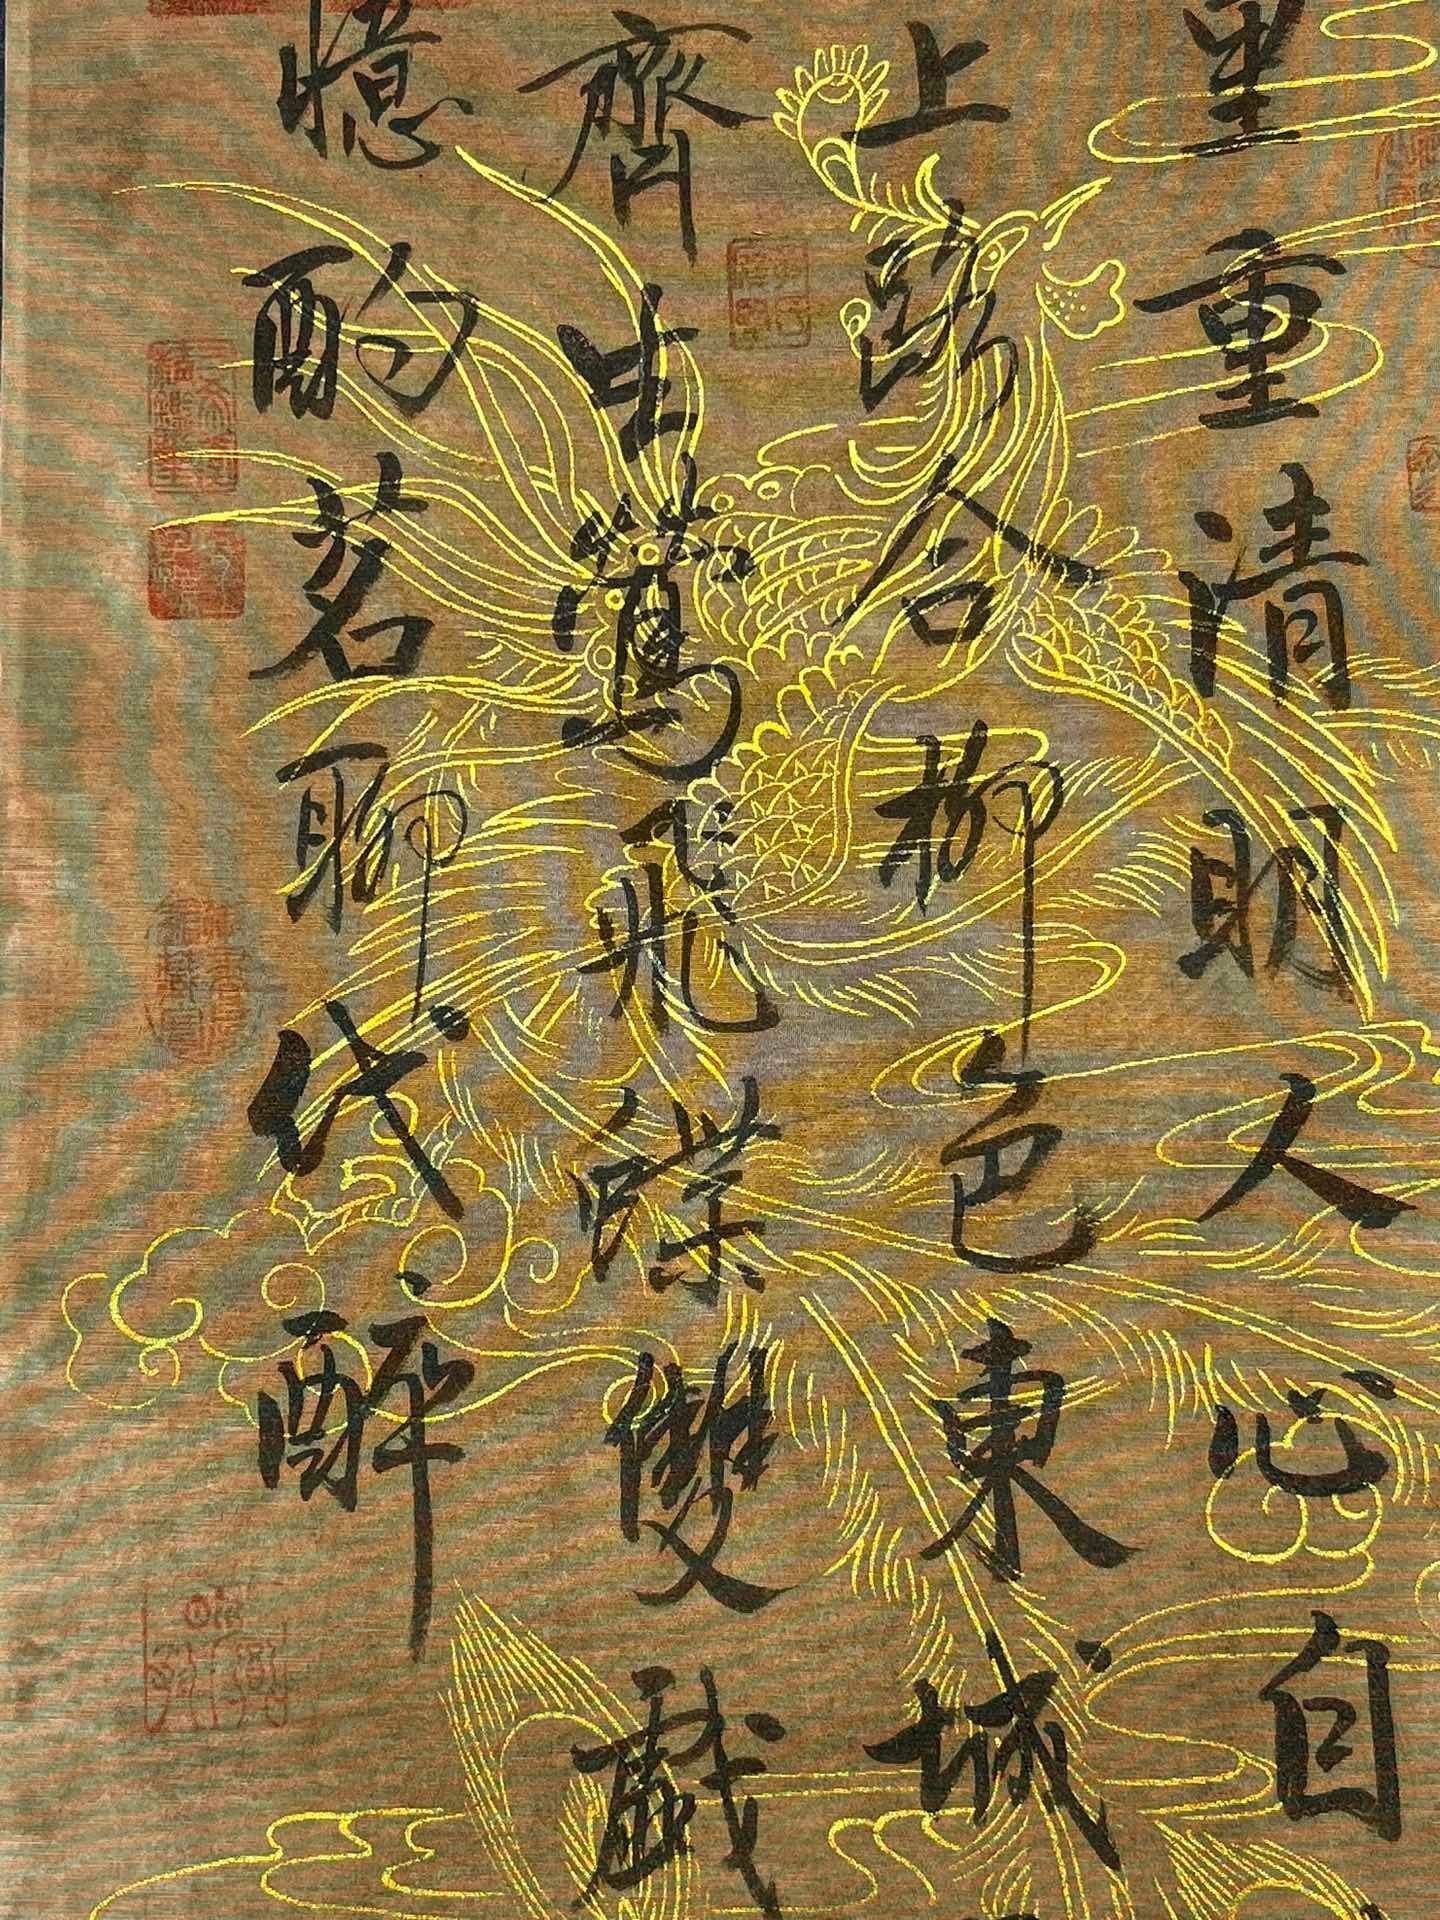 里重清明人心自
上路合柳色東城
齊生鶯飛蝶雙戲
憶酌茗聊代醉